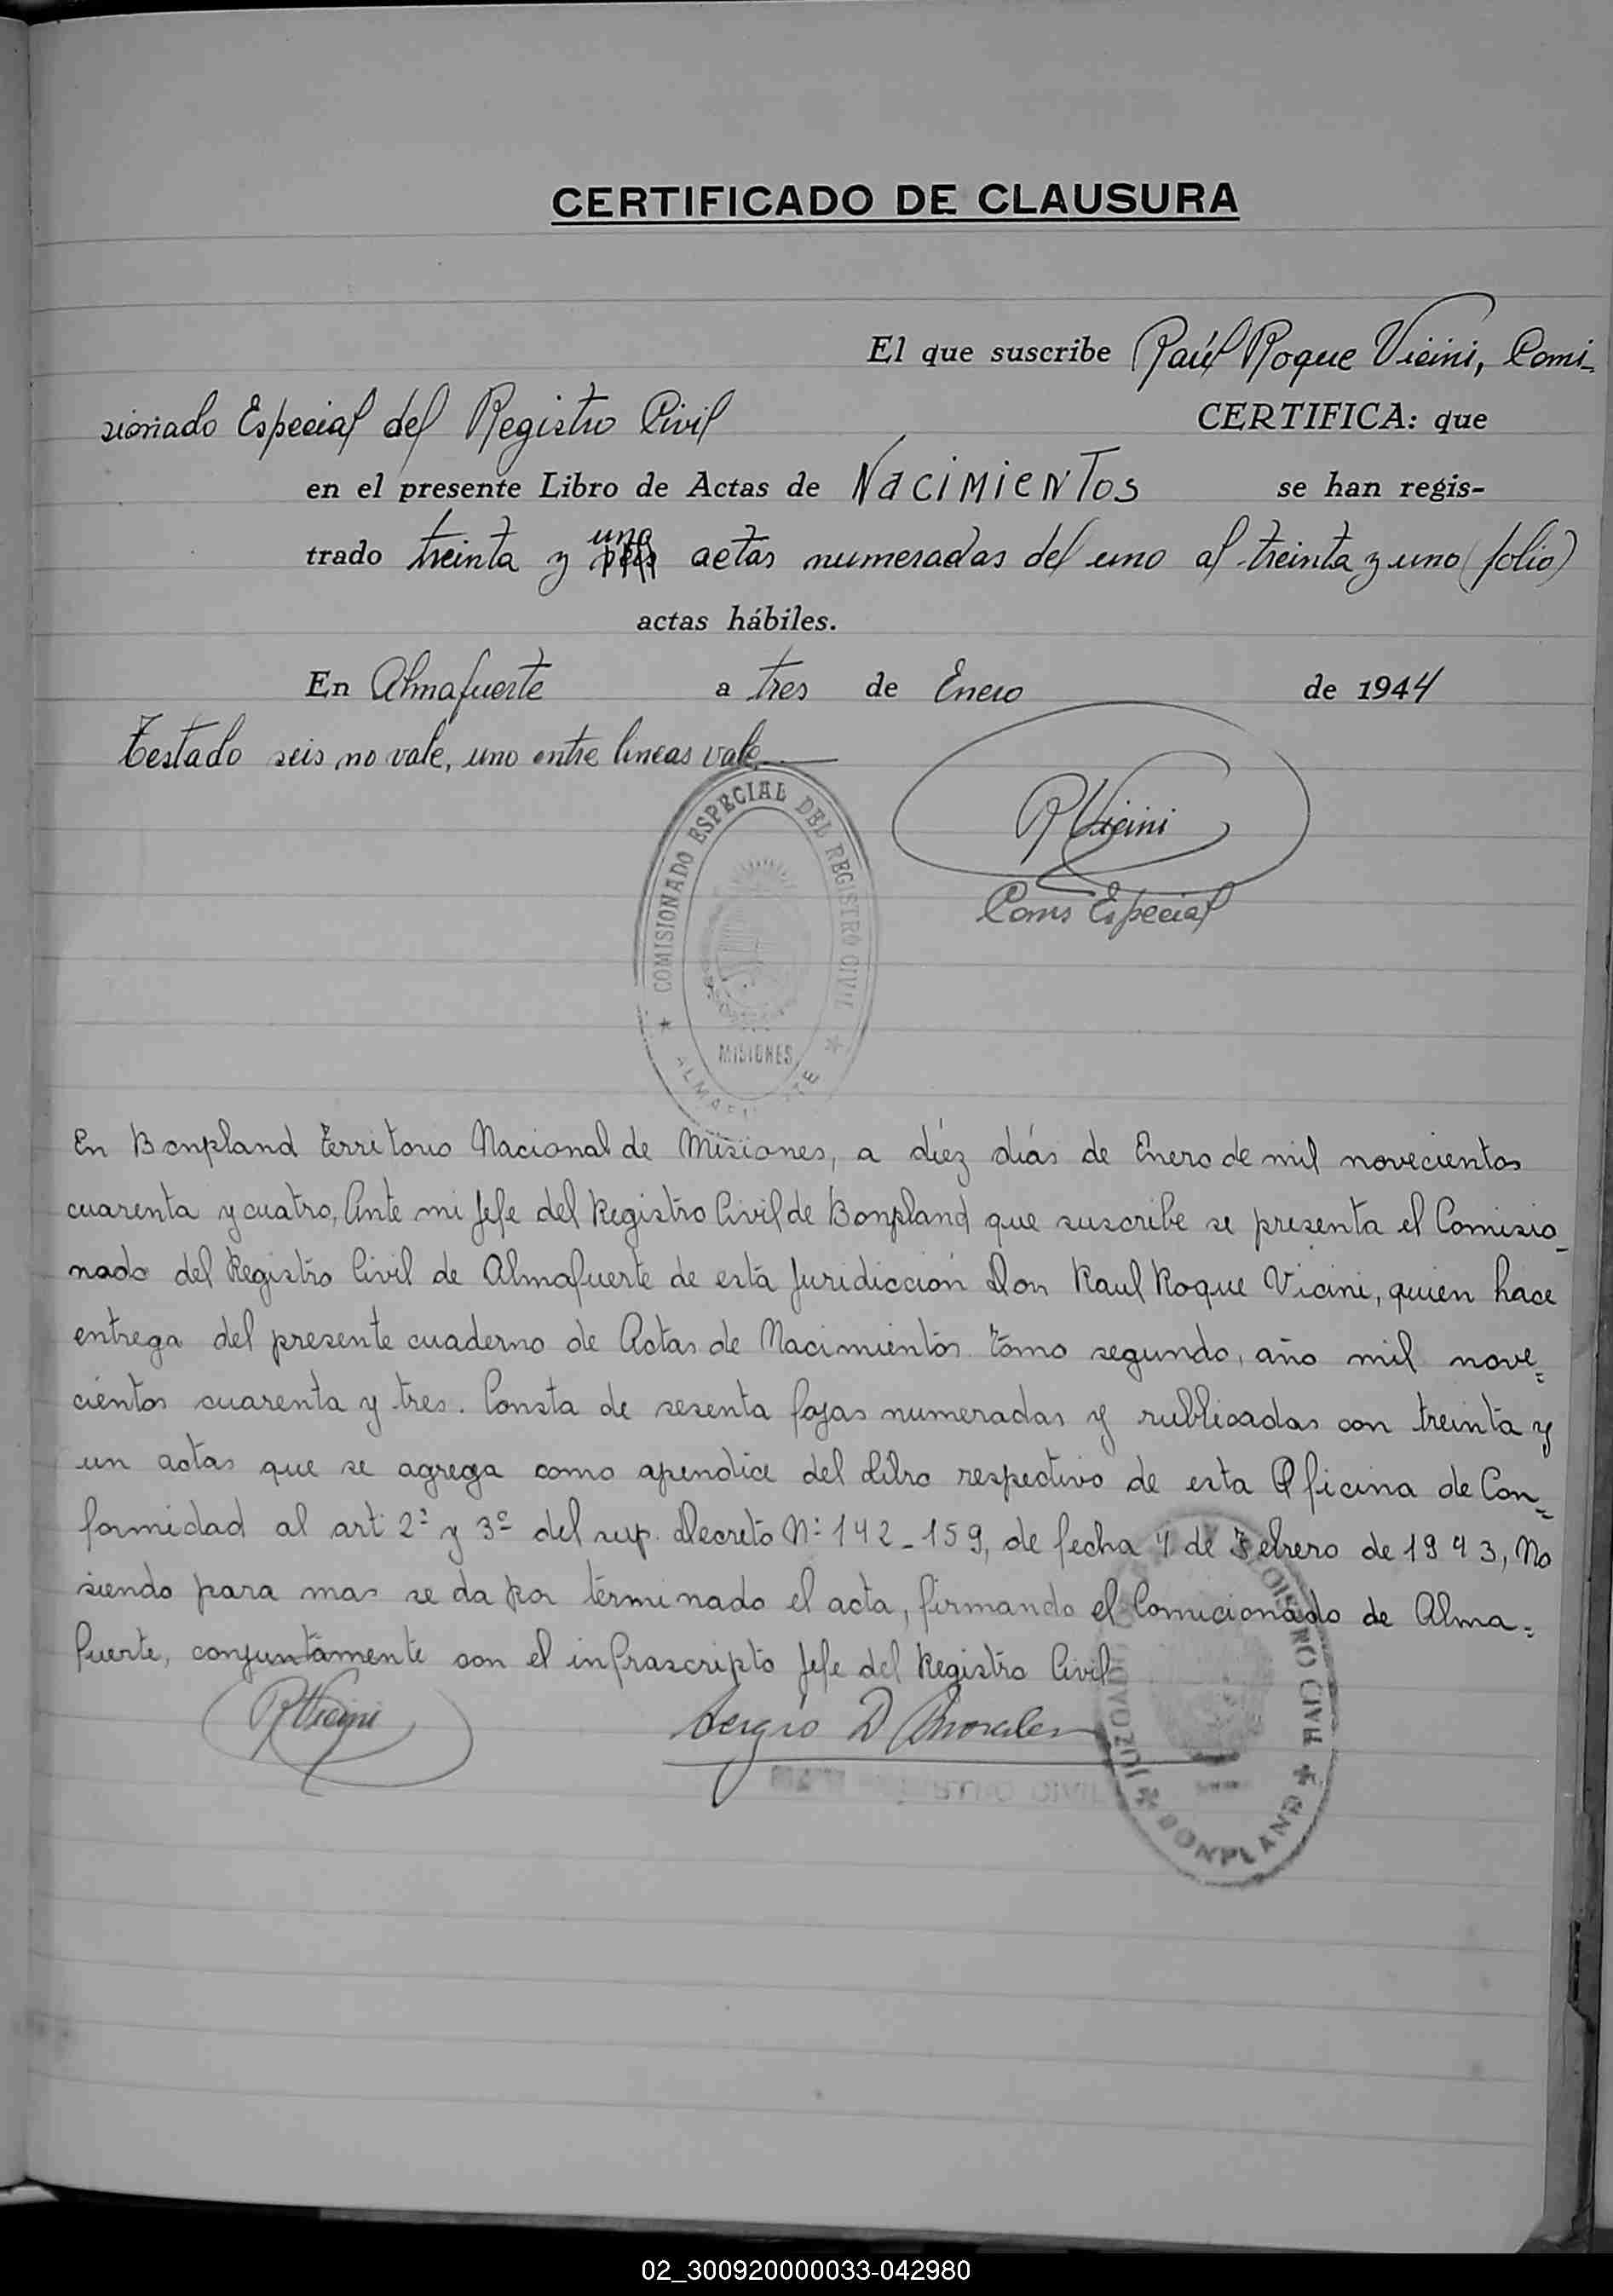 CERTIFICADO DE CLAUSURA
El que suscribe Raúl Roque Vicini, Comi-
sionado Especial del Registro Civil CERTIFICA: que
en el presente Libro de Actas de Nacimientos se han regis-
trado treinta y seis uno actas numeradas del uno al treinta y uno (folio)
actas hábiles.
En Almafuerte a tres de Enero de 1944
Testado seis no vale, uno entre lineas vale.
COMISIONADO ESPECIAL DEL REGISTRO CIVIL
MISIONES
RVicini
Coms Especial
En Bonpland Territorio Nacional de Misiones, a diéz días de Enero de mil novecientos
cuarenta y cuatro, Ante mi Jefe del Registro Civil de Bonpland que suscribe se presenta el Comisio-
nado del Registro Civil de Almafuerte de esta Juridiccion Don Raul Roque Vicini, quien hace
entrega del presente cuaderno de Actas de Nacimientos tomo segundo, año mil nove=
cientos cuarenta y tres. Consta de sesenta fojas numeradas y rublicadas con treinta y
un actas que se agrega como apendice del Libro respectivo de esta Oficina de Con=
formidad al art. 2º y 3º del sup. Decreto Nº 142-159, de fecha 4 de Febrero de 1943, No
siendo para mas se da por terminado el acta, firmando el Comicionado de Alma=
fuerte, conjuntamente con el infrascripto Jefe del Registro Civil
RVicini Sergio D Morales
BONPLAND
02_300920000033-042980